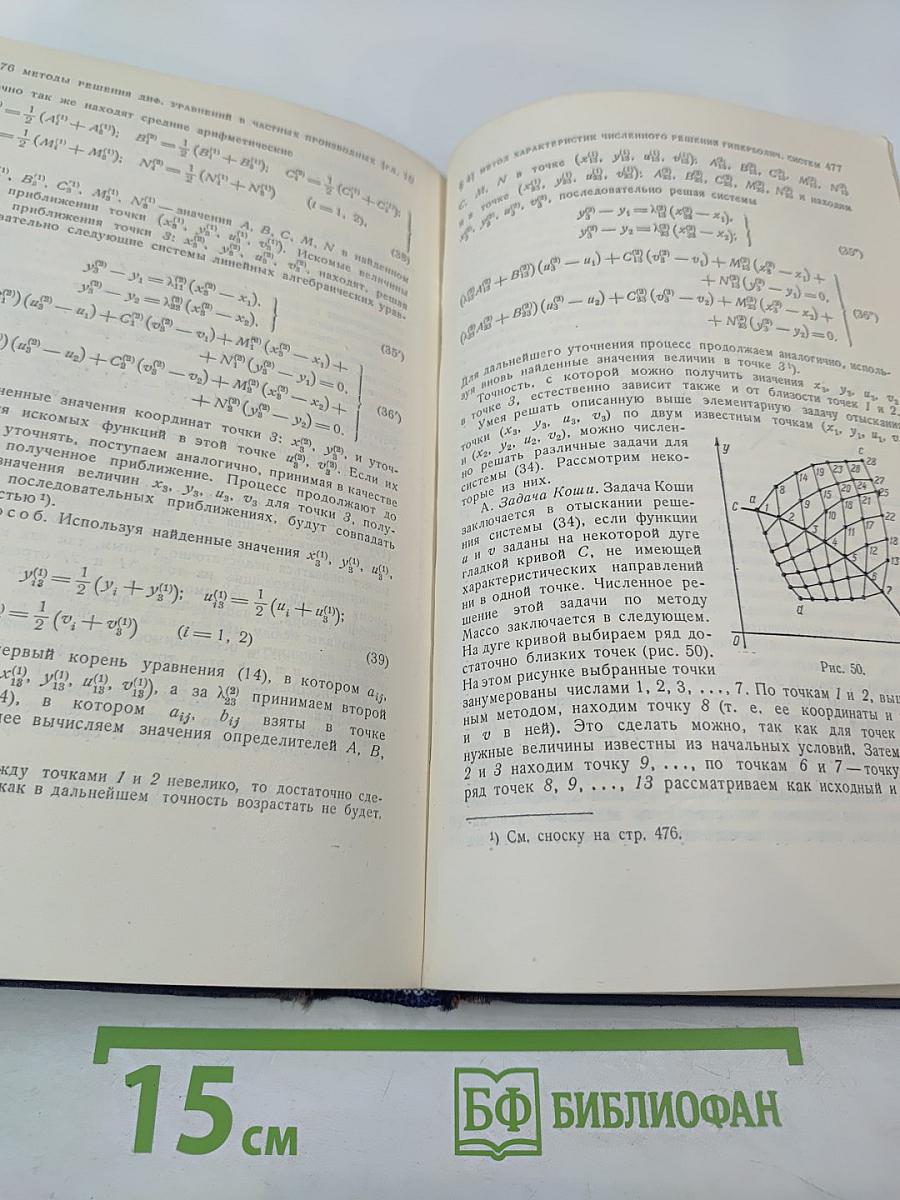 76 МЕТОДЫ РЕШЕНИЯ ДИФ. УРАВНЕНИЙ В ЧАСТНЫХ ПРОИЗВОДНЫХ [ГЛ. 10
чно так же находят средние арифметические
= 1/2 (A₁⁽¹⁾ + A₃⁽¹⁾); B₁⁽²⁾ = 1/2 (B₁⁽¹⁾ + B₃⁽¹⁾); C₁⁽²⁾ = 1/2 (C₁⁽¹⁾ +
= 1/2 (M₁⁽¹⁾ + M₃⁽¹⁾); N₁⁽²⁾ = 1/2 (N₁⁽¹⁾ + N₃⁽¹⁾) (i = 1, 2),
(38)
B₃⁽¹⁾, C₃⁽¹⁾, M₃⁽¹⁾, N₃⁽¹⁾ — значения A, B, C, M, N в найденном
приближении точки (x₃⁽¹⁾, y₃⁽¹⁾, u₃⁽¹⁾, v₃⁽¹⁾). Искомые величины
приближения точки 3: x₃⁽²⁾, y₃⁽²⁾, u₃⁽²⁾, v₃⁽²⁾, находят, решая
вательно следующие системы линейных алгебраических урав-
y₃⁽²⁾ − y₁ = (x₃⁽²⁾ − x₁),
y₃⁽²⁾ − y₂ = (x₃⁽²⁾ − x₂),
(35′)
)(u₃⁽²⁾ − u₁) + C₁⁽²⁾(v₃⁽²⁾ − v₁) + M₁⁽²⁾(x₃⁽²⁾ − x₁) +
+ N₁⁽²⁾(y₃⁽²⁾ − y₁) = 0,
)(u₃⁽²⁾ − u₂) + C₂⁽²⁾(v₃⁽²⁾ − v₂) + M₂⁽²⁾(x₃⁽²⁾ − x₂) +
+ N₂⁽²⁾(y₃⁽²⁾ − y₂) = 0.
(36′)
ненные значения координат точки 3: x₃⁽²⁾, y₃⁽²⁾, и уточ-
я искомых функций в этой точке u₃⁽²⁾, v₃⁽²⁾. Если их
уточнять, поступаем аналогично, принимая в качестве
полученное приближение. Процесс продолжают до
значения величин x₃, y₃, u₃, v₃ для точки 3, полу-
последовательных приближениях, будут совпадать
стью ²).
особ. Используя найденные значения x₃⁽¹⁾, y₃⁽¹⁾, u₃⁽¹⁾,
y_{i3}⁽¹⁾ = 1/2 (y_i + y₃⁽¹⁾); u_{i3}⁽¹⁾ = 1/2 (u_i + u₃⁽¹⁾);
= 1/2 (v_i + v₃⁽¹⁾) (i = 1, 2)
(39)
ервый корень уравнения (14), в котором a_{ij},
x₁₃⁽¹⁾, y₁₃⁽¹⁾, u₁₃⁽¹⁾, v₁₃⁽¹⁾), а за λ₂₃⁽²⁾ принимаем второй
4), в котором a_{ij}, b_{ij} взяты в точке
ее вычисляем значения определителей A, B,
жду точками 1 и 2 невелико, то достаточно сде-
как в дальнейшем точность возрастать не будет.
§ 4] МЕТОД ХАРАКТЕРИСТИК ЧИСЛЕННОГО РЕШЕНИЯ ГИПЕРБОЛИЧ. СИСТЕМ 477
C, M, N в точке (x₁₃⁽¹⁾, y₁₃⁽¹⁾, u₁₃⁽¹⁾, v₁₃⁽¹⁾): A₁₃⁽²⁾, B₁₃⁽²⁾, C₁₃⁽²⁾, M₁₃⁽²⁾, N₁₃⁽²⁾
и в точке (x₂₃⁽¹⁾, y₂₃⁽¹⁾, u₂₃⁽¹⁾, v₂₃⁽¹⁾): A₂₃⁽²⁾, B₂₃⁽²⁾, C₂₃⁽²⁾, M₂₃⁽²⁾, N₂₃⁽²⁾ и находим
x₃⁽²⁾, y₃⁽²⁾, u₃⁽²⁾, v₃⁽²⁾, последовательно решая системы
y₃⁽²⁾ − y₁ = λ₁₃⁽²⁾(x₃⁽²⁾ − x₁),
y₃⁽²⁾ − y₂ = λ₂₃⁽²⁾(x₃⁽²⁾ − x₂);
(35″)
(λ₁₃⁽²⁾A₁₃⁽²⁾ + B₁₃⁽²⁾)(u₃⁽²⁾ − u₁) + C₁₃⁽²⁾(v₃⁽²⁾ − v₁) + M₁₃⁽²⁾(x₃⁽²⁾ − x₁) +
+ N₁₃⁽²⁾(y₃⁽²⁾ − y₁) = 0,
(λ₂₃⁽²⁾A₂₃⁽²⁾ + B₂₃⁽²⁾)(u₃⁽²⁾ − u₂) + C₂₃⁽²⁾(v₃⁽²⁾ − v₂) + M₂₃⁽²⁾(x₃⁽²⁾ − x₂) +
+ N₂₃⁽²⁾(y₃⁽²⁾ − y₂) = 0.
(36″)
Для дальнейшего уточнения процесс продолжаем аналогично, исполь-
зуя вновь найденные значения величин в точке 3 ¹).
Точность, с которой можно получить значения x₃, y₃, u₃, v₃
в точке 3, естественно зависит также и от близости точек 1 и 2.
Умея решать описанную выше элементарную задачу отыскания
точки (x₃, y₃, u₃, v₃) по двум известным точкам (x₁, y₁, u₁, v₁
и (x₂, y₂, u₂, v₂), можно числен-
но решать различные задачи для
системы (34). Рассмотрим неко-
торые из них.
А. Задача Коши. Задача Коши
заключается в отыскании реше-
ния системы (34), если функции
u и v заданы на некоторой дуге
гладкой кривой C, не имеющей
характеристических направлений
ни в одной точке. Численное ре-
шение этой задачи по методу
Массо заключается в следующем.
На дуге кривой выбираем ряд до-
статочно близких точек (рис. 50).
На этом рисунке выбранные точки
y
C
a
c
1
2
3
4
5
6
7
8
9
10
11
12
13
14
15
16
17
18
19
20
21
22
23
24
25
27
28
d
0
Рис. 50.
занумерованы числами 1, 2, 3, ..., 7. По точкам 1 и 2, выш
ным методом, находим точку 8 (т. е. ее координаты и
и v в ней). Это сделать можно, так как для точек
нужные величины известны из начальных условий. Затем
2 и 3 находим точку 9, ..., по точкам 6 и 7 — точку
ряд точек 8, 9, ..., 13 рассматриваем как исходный и
¹) См. сноску на стр. 476.
15 см
БФ БИБЛИОФАН